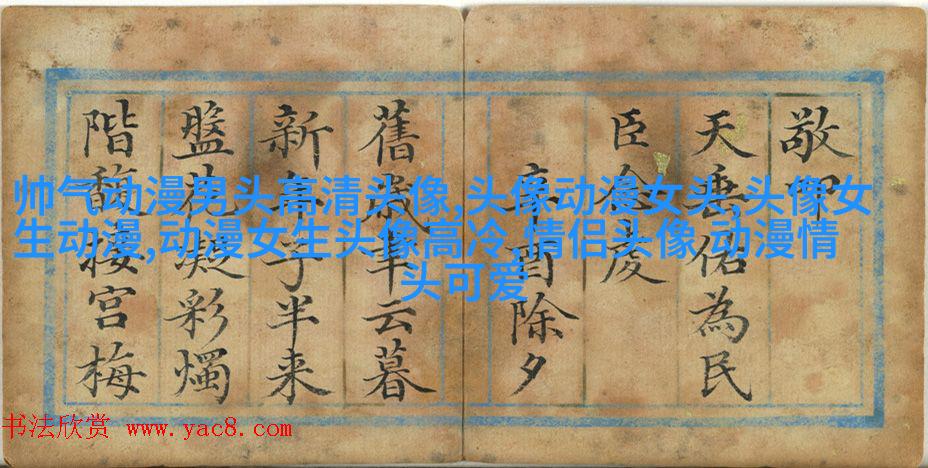 敬
天垂佑為民
臣
辛酉除夕
舊歲聿云暮
新年子半来
盤花凝彩燭
階馥接宫梅
帅气动漫男头高清头像,头像动漫女头,头像女
生动漫,动漫女生头像高冷,情侣头像,动漫情
头可爱
书法欣赏 www.yac8.com